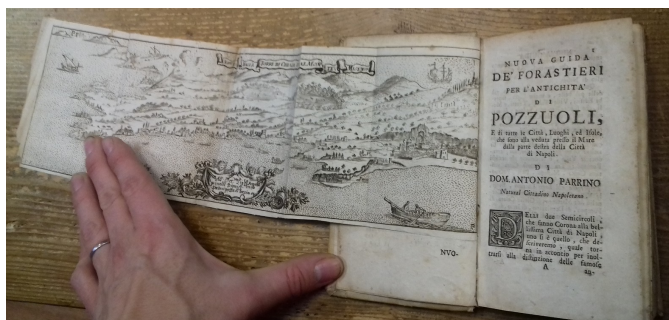 NVO-
NUOVA GUIDA
DE' FORASTIERI
PER L'ANTICHITA'
DI
POZZUOLI,
E di tutte le Città, Luoghi, ed Isole,
che sono alla veduta presso il Mare
dalla parte destra della Città
di Napoli.
DI
DOM. ANTONIO PARRINO
Natural Cittadino Napoletano.
DElli due Semicircoli,
che fanno Corona alla bel-
lissima Città di Napoli,
uno si è quello, che de-
scriveremo, quale tor-
na in acconcio per inol-
trarsi alla distinzione delle famose
A
an-